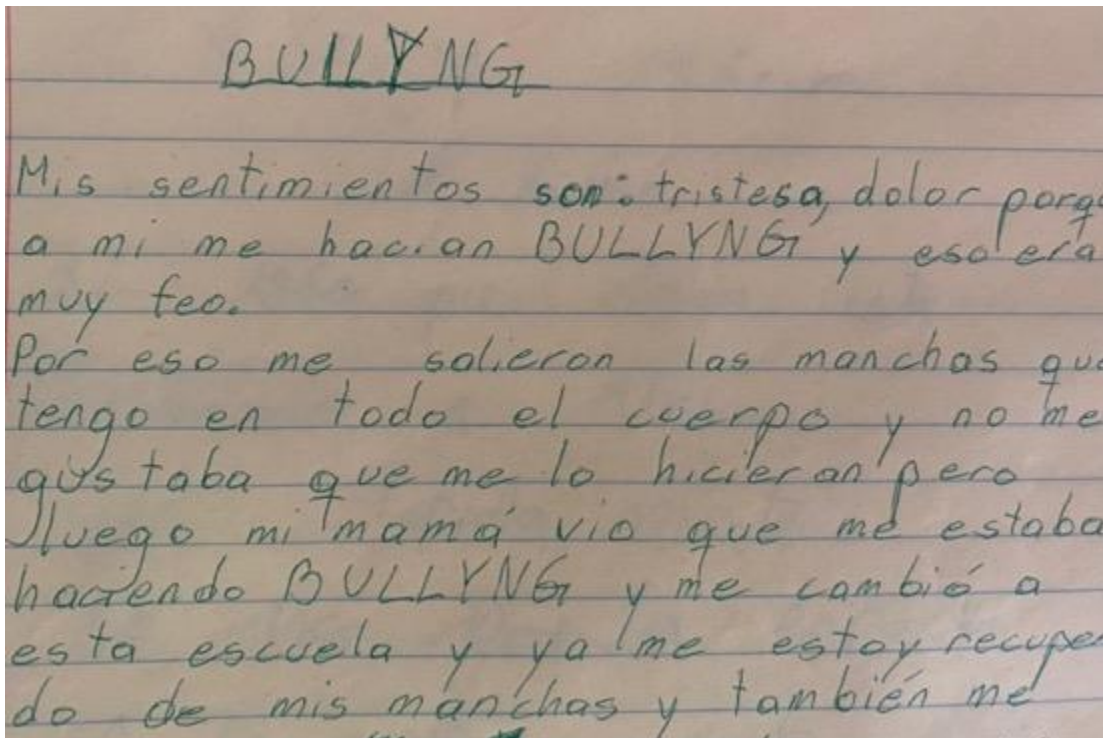 BULLYNG
Mis sentimientos son: tristesa, dolor porq
a mi me hacian BULLYNG y eso era
muy feo.
Por eso me salieron las manchas que
tengo en todo el cuerpo y no me
gustaba que me lo hicieran pero
luego mi mamá vio que me estaba
haciendo BULLYNG y me cambió a
esta escuela y ya me estoy recupe
do de mis manchas y también me